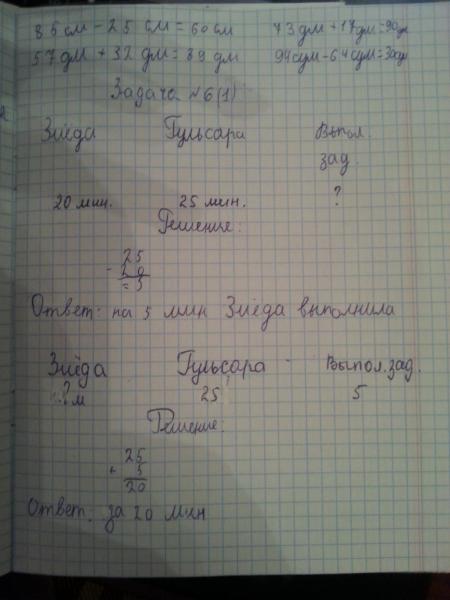 85 см - 25 см = 60 см 73 дм + 17 дм = 90 дм
57 дм + 32 дм = 89 дм 94 сум - 64 сум = 30 сум
Задача №6(1)
Зиёда Гульсара Выпол.
зад.
20 мин. 25 мин. ?
Решение:
25
- 20
= 5
Ответ: на 5 мин Зиёда выполнила
Зиёда Гульсара Выпол. зад.
? м 25 5
Решение:
25
+ 5
20
Ответ. за 20 мин